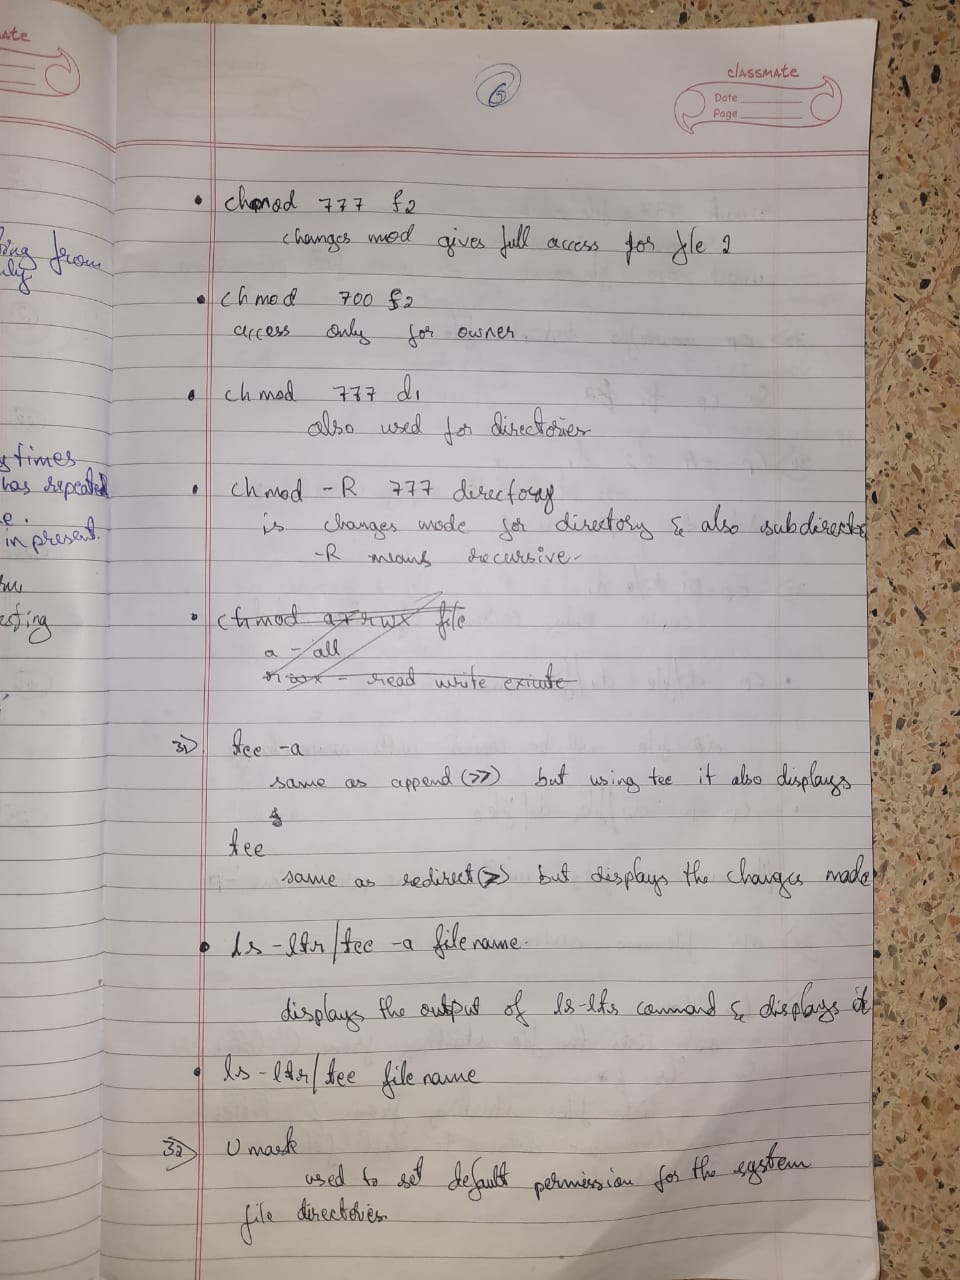 ate
classmate
Date
Page
6
• chmod 777 f2
changes mod gives full access for file 2
ing from
• chmod 700 f2
access only for owner.
• chmod 777 d1
also used for directories
times
• chmod -R 777 directory
has repeated
is changes mode for directory & also subdirecto
e.
in present.
-R means recursive.
• chmod a+rwx file
a - all
rwx - read write exicute
31) tee -a
same as append (>>) but using tee it also displays
tee
same as redirect(>) but displays the changes made
• ls -ltr/tee -a filename.
displays the output of ls-ltr command & displays it
• ls -ltr/tee file name
32) Umask
used to set default permission for the system
file directories.